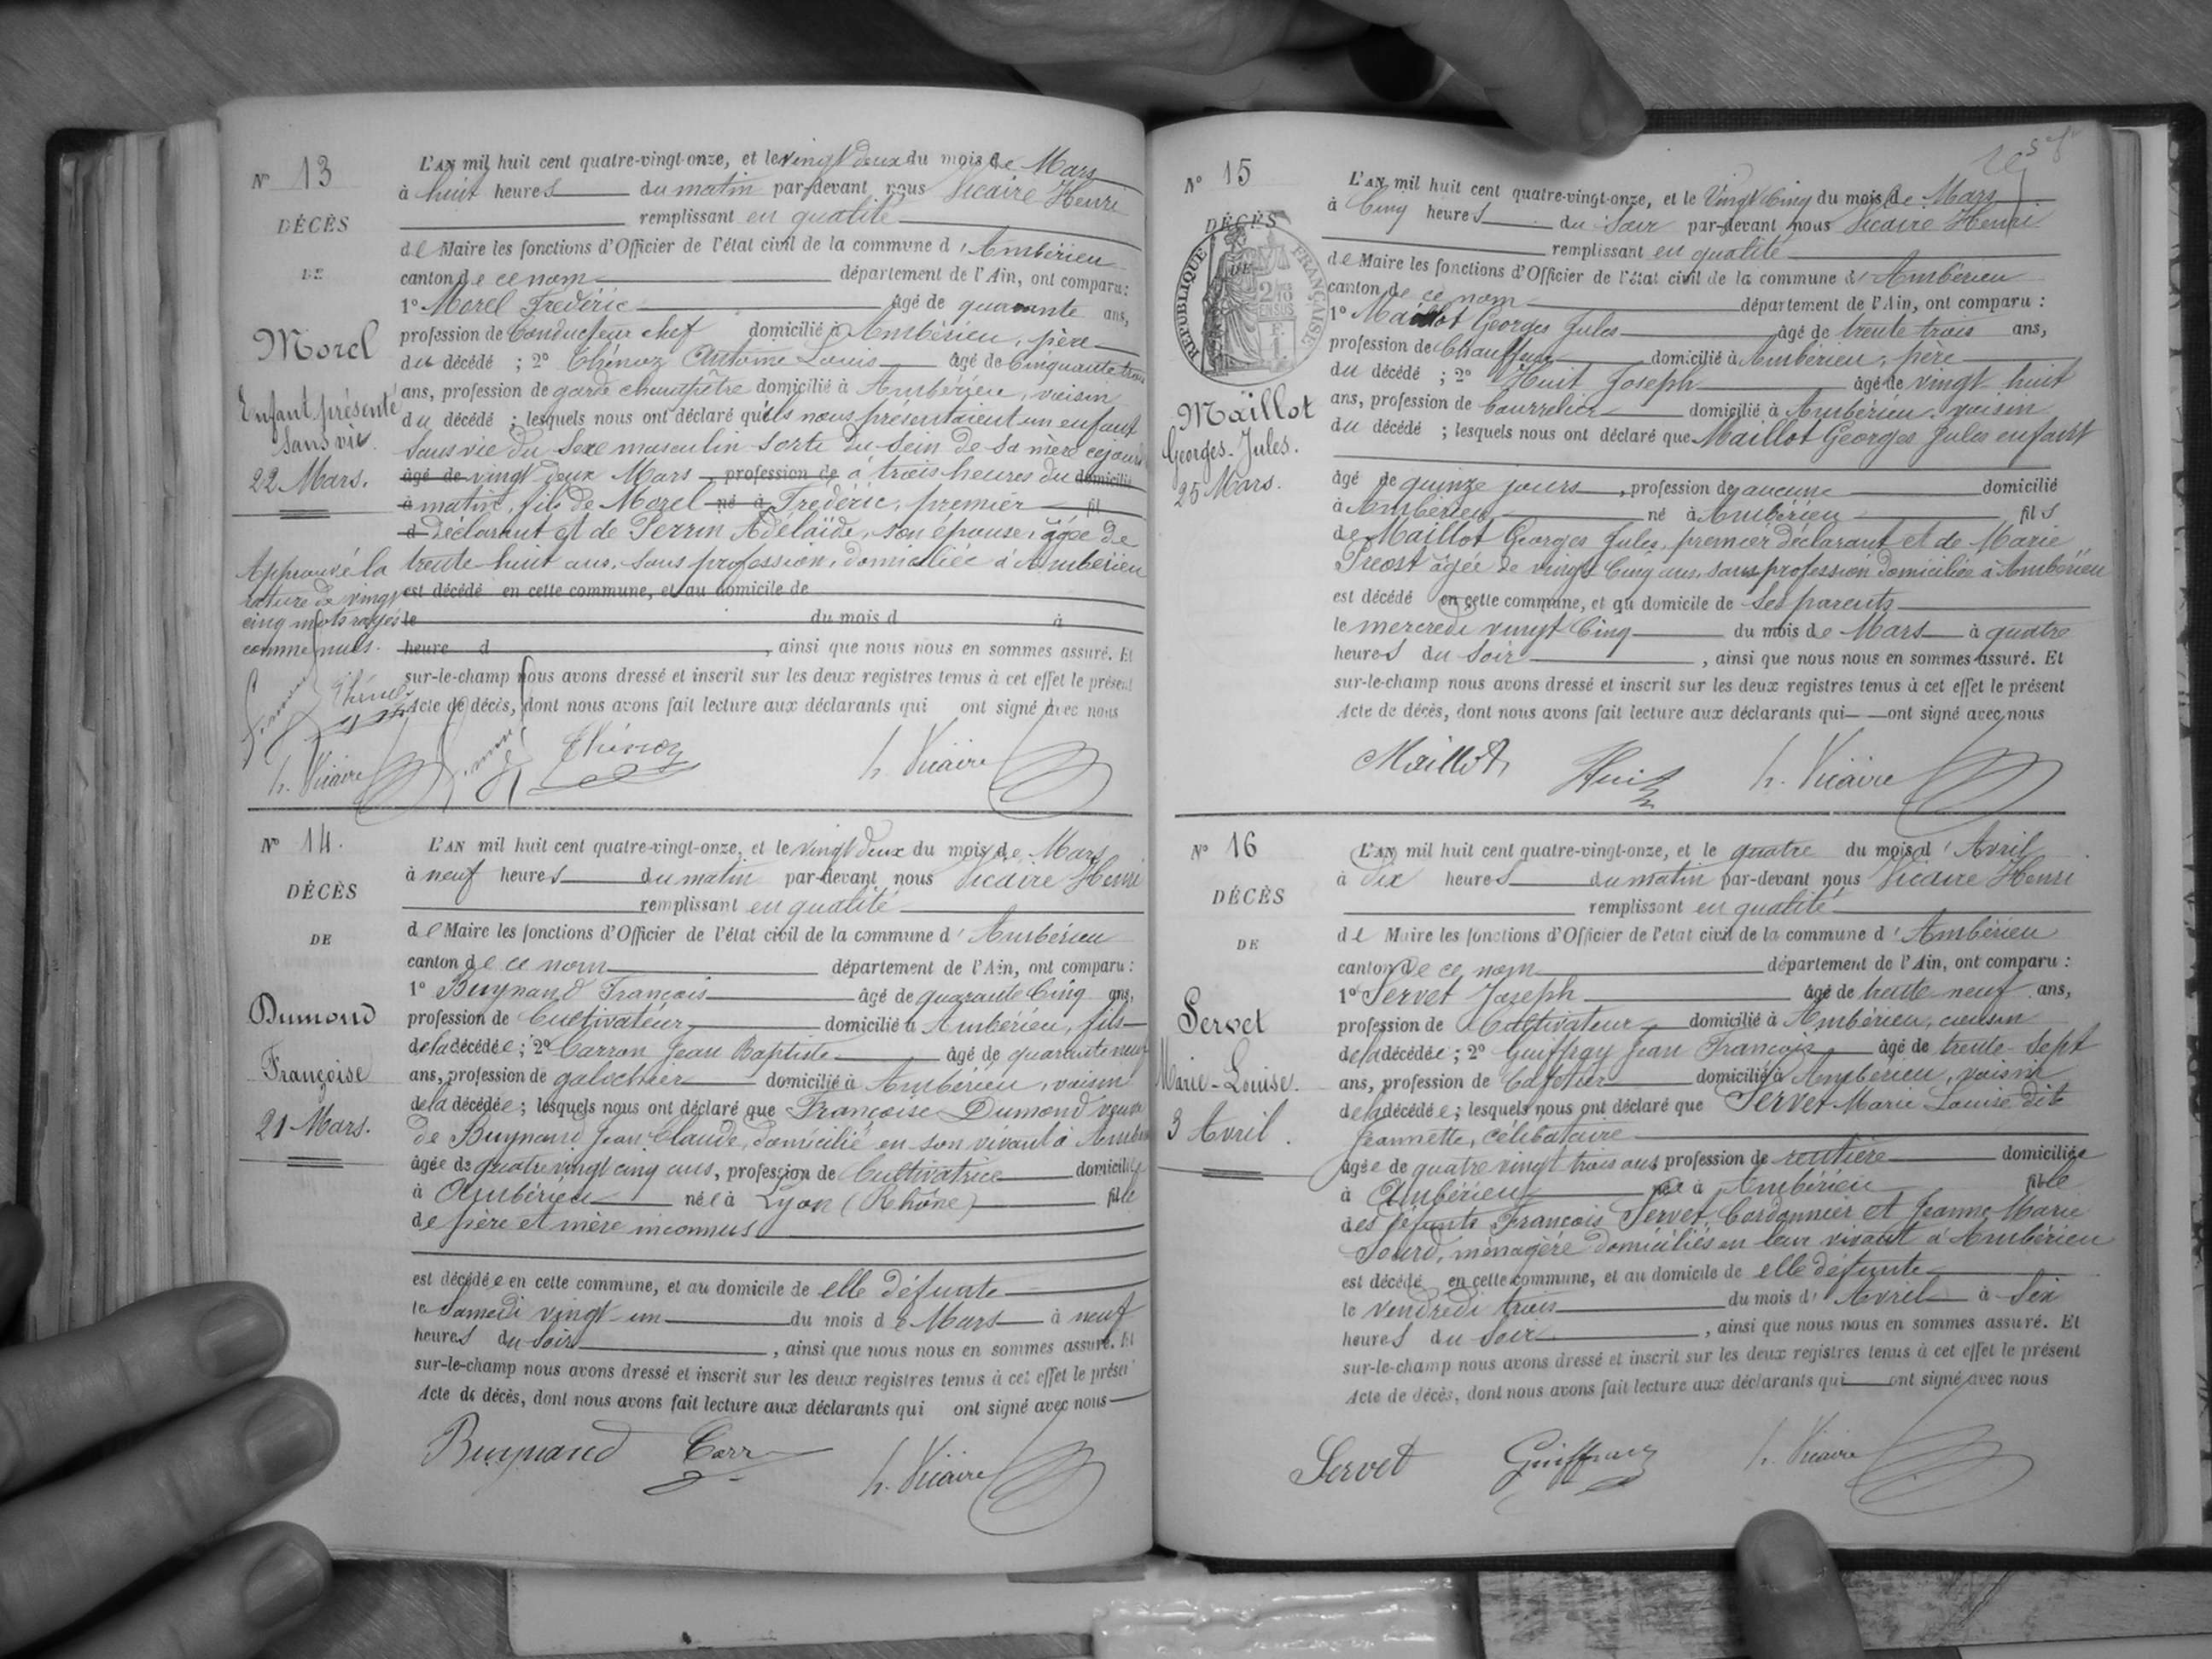 N° 13
DÉCÈS
DE
Morel
Enfant présenté
sans vie.
22 Mars.
Approuvé la
rature de vingt
cinq mots rayés
comme nuls.
h. Vicaire
L'AN mil huit cent quatre-vingt-onze, et le vingt deux du mois de Mars
à huit heures du matin par-devant nous Vicaire Henri
remplissant en qualité
de Maire les fonctions d'Officier de l'état civil de la commune d'Ambérieu
canton de ce nom département de l'Ain, ont comparu :
1° Morel Frédéric âgé de quarante ans,
profession de Conducteur chef domicilié à Ambérieu, père
du décédé ; 2° Thénoz Antoine Louis âgé de Cinquante trois
ans, profession de garde champêtre domicilié à Ambérieu, voisin
du décédé ; lesquels nous ont déclaré qu'ils nous présentaient un enfant
sans vie du sexe masculin sorti du sein de sa mère cejourd
âgé de vingt deux Mars , profession de à trois heures du domicilié
à matin, fils de Morel né à Frédéric, premier fil
d déclarant et de Perrin Adélaïde, son épouse, âgée de
trente huit ans, sans profession, domiciliée à Ambérieu
est décédé en cette commune, et au domicile de
le du mois d à
heure d , ainsi que nous nous en sommes assuré. Et
sur-le-champ nous avons dressé et inscrit sur les deux registres tenus à cet effet le présent
Acte de décès, dont nous avons fait lecture aux déclarants qui ont signé avec nous
Thénoz h. Vicaire
N° 14.
DÉCÈS
DE
Dumond
Françoise
21 Mars.
L'AN mil huit cent quatre-vingt-onze, et le vingt deux du mois de Mars
à neuf heures du matin par-devant nous Vicaire Henri
remplissant en qualité
de Maire les fonctions d'Officier de l'état civil de la commune d'Ambérieu
canton de ce nom département de l'Ain, ont comparu :
1° Buynand François âgé de quarante Cinq ans,
profession de Cultivateur domicilié à Ambérieu, fils
de la décédée ; 2° Carron Jean Baptiste âgé de quarante neuf
ans, profession de galochier domicilié à Ambérieu, voisin
de la décédée ; lesquels nous ont déclaré que Françoise Dumond veuve
de Buynand Jean Claude, domicilié en son vivant à Ambérieu
âgée de quatre vingt cinq ans, profession de Cultivatrice domiciliée
à Ambérieu née à Lyon (Rhône) fille
de père et mère inconnus
est décédée en cette commune, et au domicile de elle défunte
le Samedi vingt-un du mois de Mars à neuf
heures du soir , ainsi que nous nous en sommes assuré. Et
sur-le-champ nous avons dressé et inscrit sur les deux registres tenus à cet effet le présent
Acte de décès, dont nous avons fait lecture aux déclarants qui ont signé avec nous
Buynand Carr h. Vicaire
N° 15
DÉCÈS
DE
RÉPUBLIQUE FRANÇAISE
2/10 EN SUS
Maïllot
Georges-Jules.
25 Mars.
L'AN mil huit cent quatre-vingt-onze, et le Vingt Cinq du mois de Mars
à Cinq heures du Soir par-devant nous Vicaire Henri
remplissant en qualité
de Maire les fonctions d'Officier de l'état civil de la commune d'Ambérieu
canton de ce nom département de l'Ain, ont comparu :
1° Maillot Georges Jules âgé de trente trois ans,
profession de Chauffeur domicilié à Ambérieu, père
du décédé ; 2° Huit Joseph âgé de vingt huit
ans, profession de bourrelier domicilié à Ambérieu, voisin
du décédé ; lesquels nous ont déclaré que Maillot Georges Jules enfant
âgé de quinze jours , profession de aucune domicilié
à Ambérieu né à Ambérieu fils
de Maillot Georges Jules, premier déclarant et de Marie
Preost âgée de vingt Cinq ans, sans profession domiciliés à Ambérieu
est décédé en cette commune, et au domicile de ses parents
le mercredi vingt Cinq du mois de Mars à quatre
heures du soir , ainsi que nous nous en sommes assuré. Et
sur-le-champ nous avons dressé et inscrit sur les deux registres tenus à cet effet le présent
Acte de décès, dont nous avons fait lecture aux déclarants qui ont signé avec nous
Maillot Huit h. Vicaire
N° 16
DÉCÈS
DE
Servet
Marie-Louise.
3 Avril.
L'AN mil huit cent quatre-vingt-onze, et le quatre du mois d'Avril
à dix heures du matin par-devant nous Vicaire Henri
remplissant en qualité
de Maire les fonctions d'Officier de l'état civil de la commune d'Ambérieu
canton de ce nom département de l'Ain, ont comparu :
1° Servet Joseph âgé de trente-neuf ans,
profession de Cultivateur domicilié à Ambérieu, cousin
de la décédée ; 2° Guiffray Jean François âgé de trente-sept
ans, profession de Cafetier domicilié à Ambérieu, voisin
de la décédée ; lesquels nous ont déclaré que Servet Marie Louise dite
Jeannette, célibataire
âgée de quatre vingt trois ans profession de rentière domiciliée
à Ambérieu née à Ambérieu fille
des défunts François Servet, Cordonnier et Jeanne Marie
Sourd, ménagère domiciliés en leur vivant à Ambérieu
est décédé en cette commune, et au domicile de elle défunte
le vendredi trois du mois d'Avril à six
heures du soir , ainsi que nous nous en sommes assuré. Et
sur-le-champ nous avons dressé et inscrit sur les deux registres tenus à cet effet le présent
Acte de décès, dont nous avons fait lecture aux déclarants qui ont signé avec nous
Servet Guiffray h. Vicaire